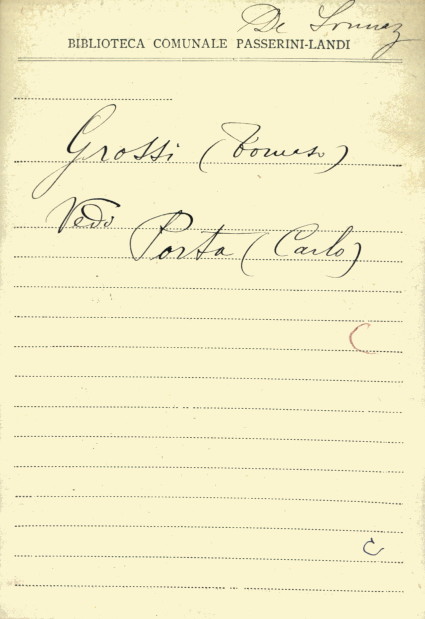 De Sonnaz
BIBLIOTECA COMUNALE PASSERINI-LANDI
Grossi (Tomaso)
Vedi
Porta (Carlo)
C
c